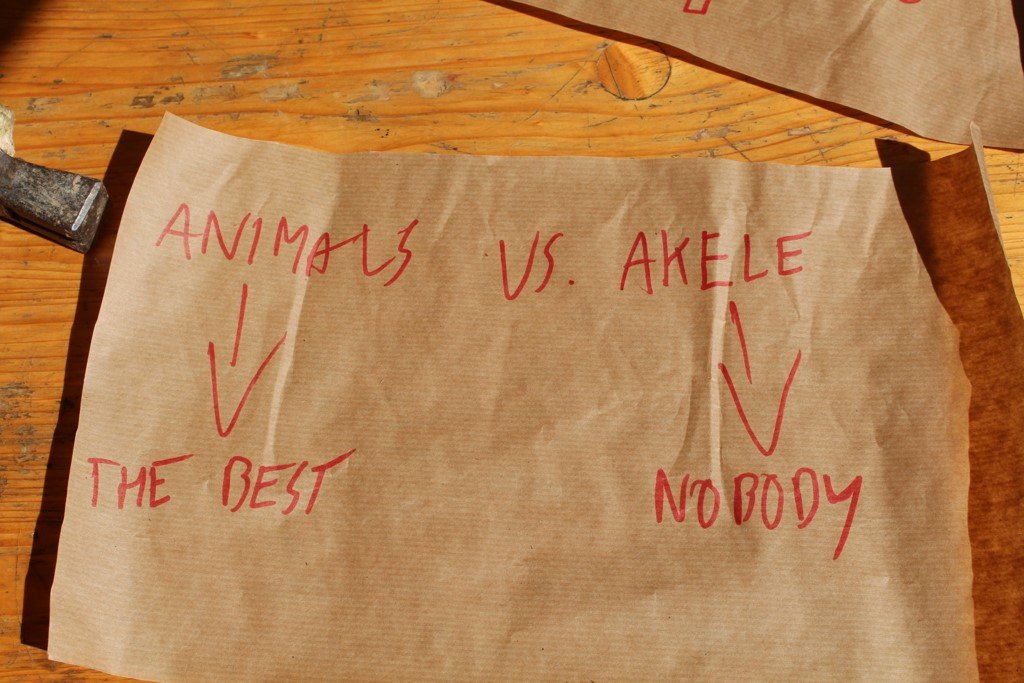 ANIMALS VS. AKELE
THE BEST NOBODY